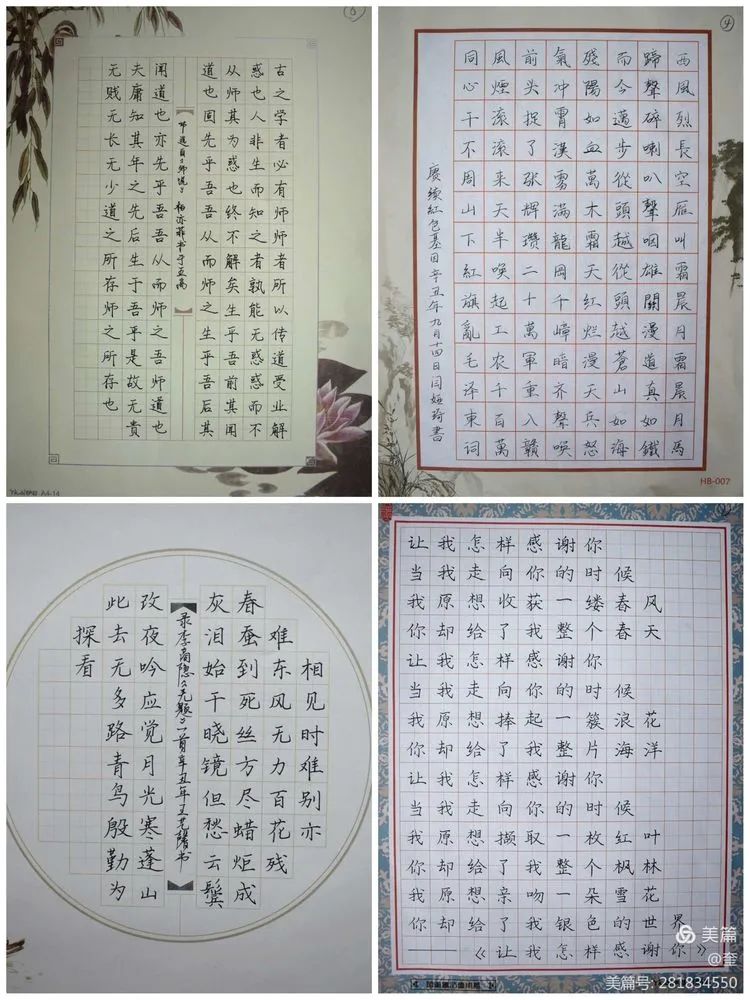 6
古之学者必有师师者所以传道受业解
惑也人非生而知之者孰能无惑惑而不
从师其为惑也终不解矣生乎吾前其闻
道也固先乎吾吾从而师之生乎吾后其
节选自《师说》
闻道也亦先乎吾吾从而师之吾师道也
夫庸知其年之先后生于吾乎是故无贵
无贱无长无少道之所存师之所存也
A4-14
4
西風烈長空雁叫霜晨月霜晨月馬
蹄聲碎喇叭聲咽雄關漫道真如鐵
而今邁步從頭越從頭越蒼山如海
殘陽如血萬木霜天紅烂漫天兵怒
氣冲霄漢雾滿龍岡千嶂暗齐聲唤
前头捉了张輝瓚二十萬軍重入贛
風煙滚滚来天半唤起工农千百萬
同心干不周山下紅旗亂毛泽東词
赓续紅色基因辛丑年九月十四日闫姮琦書
HB-007
相见时难别亦
难东风无力百花残
春蚕到死丝方尽蜡炬成
灰泪始干晓镜但愁云鬓
录李商隐《无题》一首辛丑年王艺书
改夜吟应觉月光寒蓬山
此去无多路青鸟殷勤为
探看
让我怎样感谢你
当我走向你的时候
我原想收获一缕春风
你却给了我整个春天
让我怎样感谢你
当我走向你的时候
我原想捧起一簇浪花
你却给了我整片海洋
让我怎样感谢你
当我走向你的时候
我原想撷取一枚红叶
你却给了我整个枫林
我原想亲吻一朵雪花
你却给了我银色的世界
——《让我怎样感谢你》
美篇
@奎
美篇号: 281834550